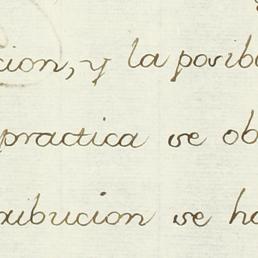 cion, y la posib
practica se ob
ribucion se ha